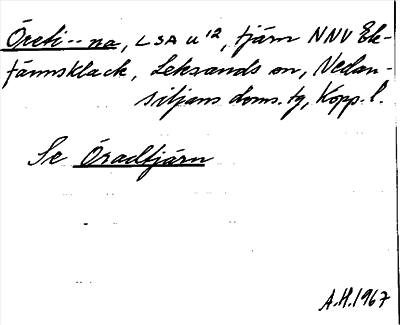 Öreti--na, LSA u 12, tjärn NNV Ek-
tännsklack, Leksands sn, Nedan-
siljans doms. tg, Kopp. l.
Se Öradtjärn
A.H. 1967